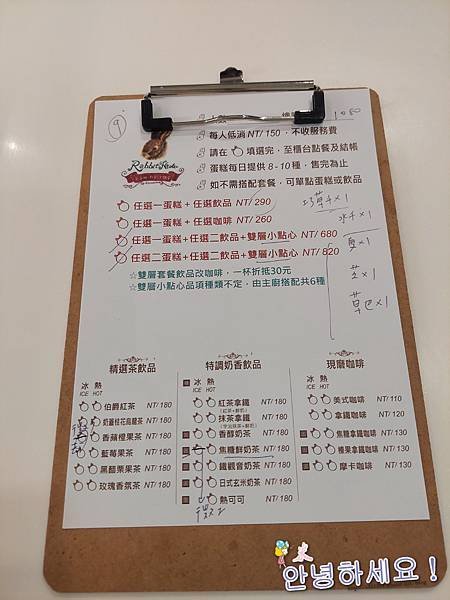 9
1080
每人低消 NT/ 150，不收服務費
請在 填選完，至櫃台點餐及結帳
蛋糕每日提供 8 - 10種，售完為止
如不需搭配套餐，可單點蛋糕或飲品
任選一蛋糕 + 任選飲品 NT/ 290
任選一蛋糕 + 任選咖啡 NT/ 260
任選二蛋糕 + 任選二飲品 + 雙層小點心 NT/ 680
任選二蛋糕 + 任選二飲品 + 雙層小點心 NT/ 820
☆雙層套餐飲品改咖啡，一杯折抵30元
☆雙層小點心品項種類不定，由主廚搭配共6種
x1
x1
x1
x1
x1
精選茶飲品
冰 熱
ICE HOT
伯爵紅茶 NT/ 180
奶蓋桂花烏龍茶 NT/ 180
香蘋橙果茶 NT/ 180
藍莓果茶 NT/ 180
黑醋栗果茶 NT/ 180
玫瑰香氛茶 NT/ 180
特調奶香飲品
冰 熱
ICE HOT
紅茶拿鐵 NT/ 180
(紅茶+鮮奶)
抹茶拿鐵 NT/ 180
(宇治抹茶+鮮奶)
香醇奶茶 NT/ 180
焦糖鮮奶茶 NT/ 180
鐵觀音奶茶 NT/ 180
日式玄米奶茶 NT/ 180
熱可可 NT/ 180
現磨咖啡
冰 熱
ICE HOT
美式咖啡 NT/110
拿鐵咖啡 NT/120
焦糖拿鐵咖啡 NT/130
榛果拿鐵咖啡 NT/130
摩卡咖啡 NT/130
안녕하세요!